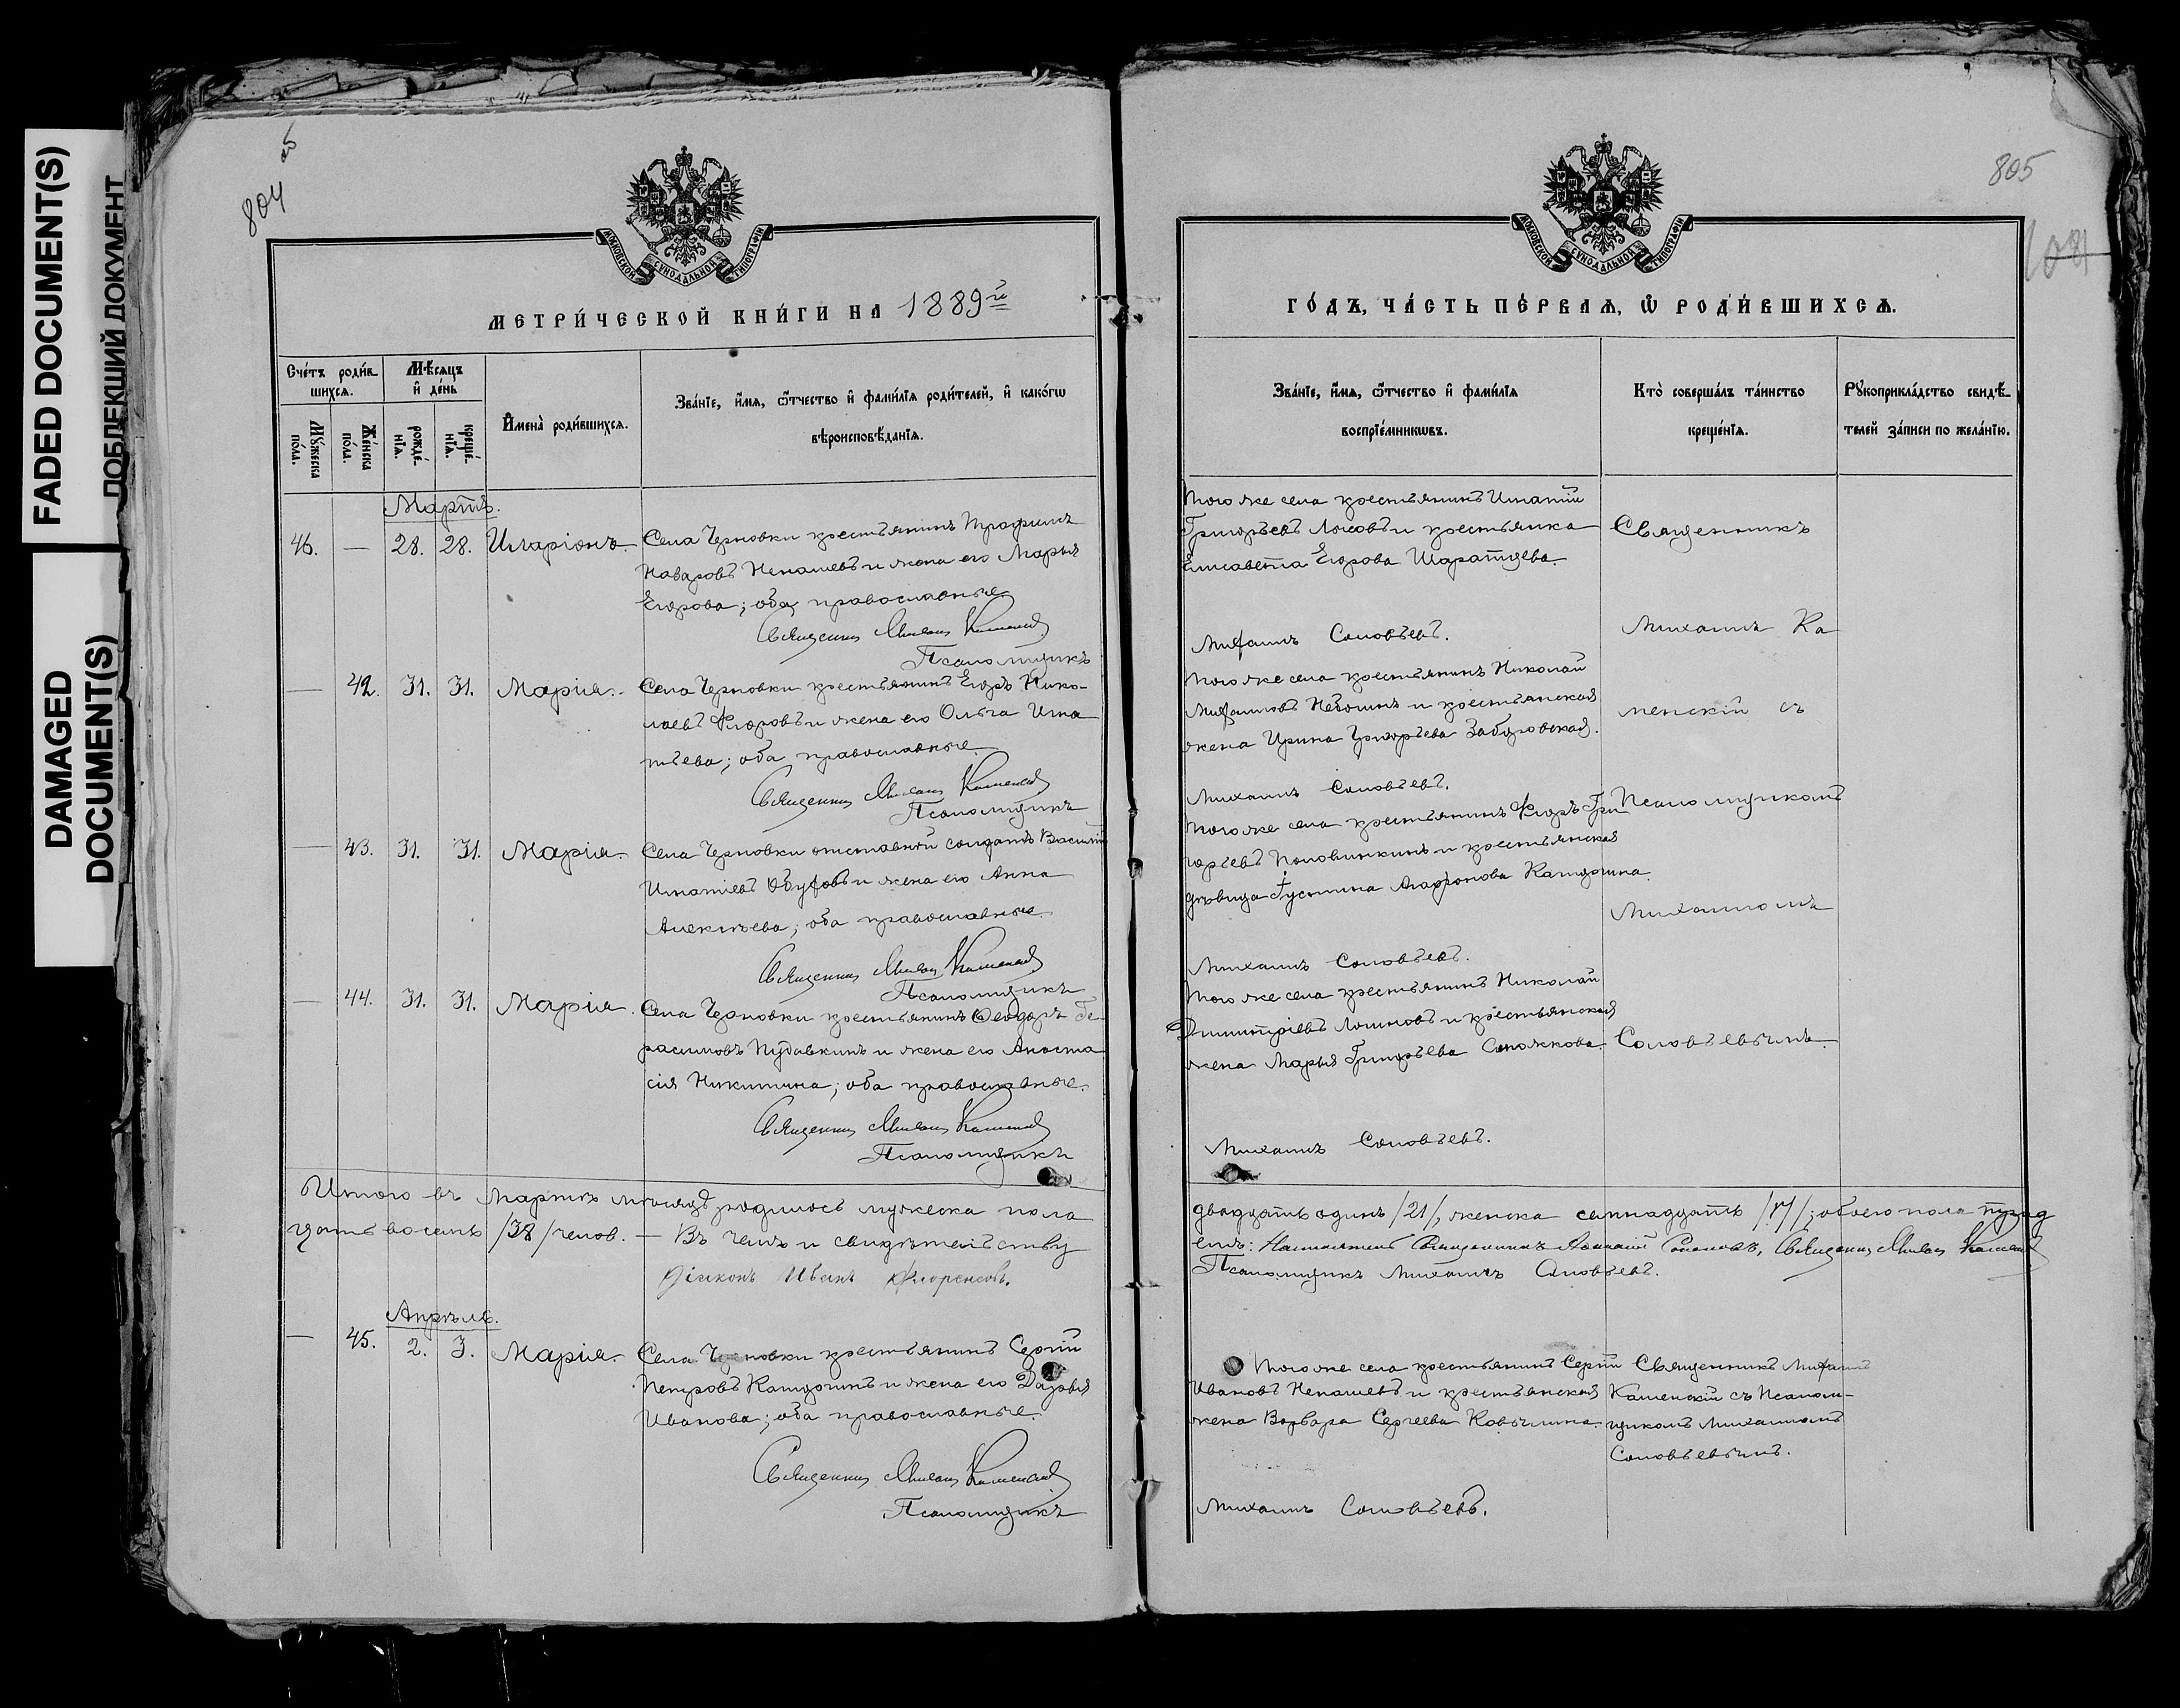 FADED DOCUMENT(S)
ПОБЛЕКШИЙ ДОКУМЕНТ
DAMAGED
DOCUMENT(S)
804 об
МОСКОВСКОЙ СѴНОДАЛЬНОЙ ТИПОГРАФІИ
МЕТРИ́ЧЕСКОЙ КНИ́ГИ НА 1889й
Сче́тъ роди́в
шихся.
Мѣ́сяцъ
и҆ де́нь
Мꙋ́жеска
по́ла.
Же́нска
по́ла.
рожде́-
нїѧ.
креще́-
нїѧ.
И҆мена̀ роди́вшихсѧ.
Зва́нїе, и҆́мѧ, ѻ҆́тчество и҆ фами́лїѧ роди́телей, и҆ како́гѡ
вѣроисповѣ́данїѧ.
Мартъ.
46. — 28. 28. Иларіонъ.
Села Черновки крестьянинъ Трофимъ
Назаровъ Ненашевъ и жена его Марья
Егорова; оба православные.
Священникъ Михаилъ Каменскій
Псаломщикъ
— 42. 31. 31. Марія.
Села Черновки крестьянинъ Егоръ Нико-
лаевъ Флоровъ и жена его Ольга Игна
тьева; оба православные.
Священникъ Михаилъ Каменскій
Псаломщикъ
— 43. 31. 31. Марія.
Села Черновки отставной солдатъ Василій
Игнатіевъ и жена его Анна
Алексѣева; оба православные.
Священникъ Михаилъ Каменскій
Псаломщикъ
— 44. 31. 31. Марія.
Села Черновки крестьянинъ Ѳеодоръ Ге-
расимовъ Пудавкинъ и жена его Анаста
сія Никитина; оба православные.
Священникъ Михаилъ Каменскій
Псаломщикъ
Итого въ Мартѣ мѣсяцѣ родилось мужеска пола
цать восемь /38/ челов. — Въ чемъ и свидѣтельству
Діаконъ Иванъ Флоренсовъ.
Апрѣль.
— 45. 2. 3. Марія.
Села Черновки крестьянинъ Сергій
Петровъ Кащогинъ и жена его Дарья
Иванова; оба православные.
Священникъ Михаилъ Каменскій
Псаломщикъ
805
МОСКОВСКОЙ СѴНОДАЛЬНОЙ ТИПОГРАФІИ
ГО́ДЪ, ЧА́СТЬ ПЕ́РВАѦ, Ѽ РОДИ́ВШИХСѦ.
Зва́нїе, и҆́мѧ, ѻ҆́тчество и҆ фами́лїѧ
воспрїе́мникѡвъ.
Кто̀ соверша́лъ та́инство
креще́нїѧ.
Рꙋкоприкла́дство свидѣ́-
телей за́писи по жела́нїю.
Того же села крестьянинъ Игнатій
Григорьевъ Лосевъ и крестьянка
Елисавета Егорова
Михаилъ Соловьевъ.
Священникъ
Михаилъ Ка
Того же села крестьянинъ Николай
Михаиловъ и крестьянская
жена Ирина Григорьева Заборовская.
менскій съ
Михаилъ Соловьевъ.
Псаломщикомъ
Того же села крестьянинъ Флоръ Гри
горьевъ Половинкинъ и крестьянская
дѣвица Іустина Агафонова Кащогина.
Михаиломъ
Михаилъ Соловьевъ.
Того же села крестьянинъ Николай
Димитріевъ Логиновъ и крестьянская
жена Марья Григорьева Сапожкова.
Соловьевымъ.
Михаилъ Соловьевъ.
двадцать одинъ /21/, женска семнадцать /17/; обоего пола трид
емъ: Священникъ Священникъ Михаилъ Каменскій
Псаломщикъ Михаилъ Соловьевъ.
Того же села крестьянинъ Сергій
Ивановъ Ненашевъ и крестьянская
жена Варвара Сергеева Ковылина.
Священникъ Михаилъ
Каменскій съ Псалом-
щикомъ Михаиломъ
Соловьевымъ.
Михаилъ Соловьевъ.